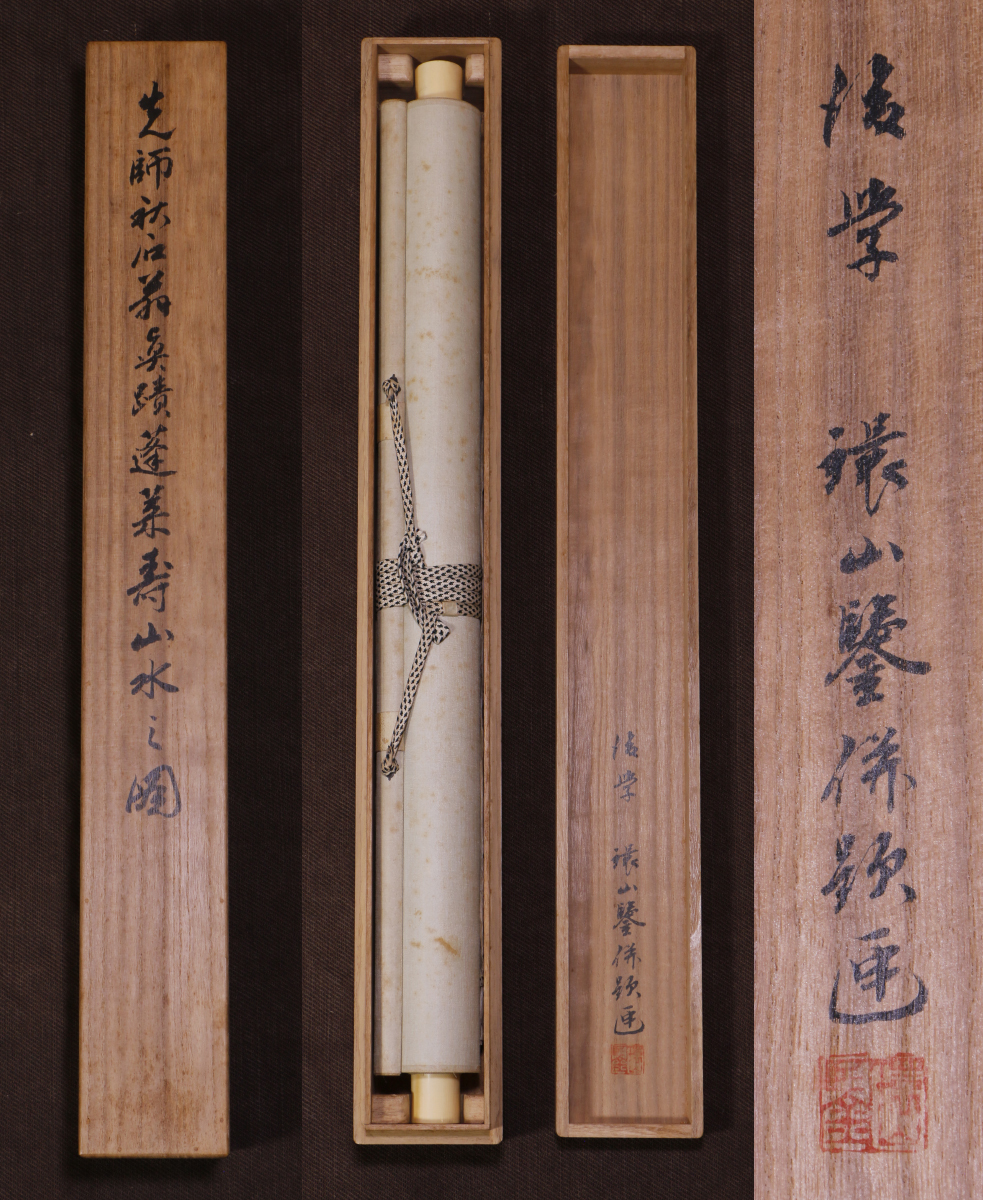 先師秋石翁眞蹟蓬莱壽山水之圖
後學 環山鑒併題匣
後學 環山鑒併題匣